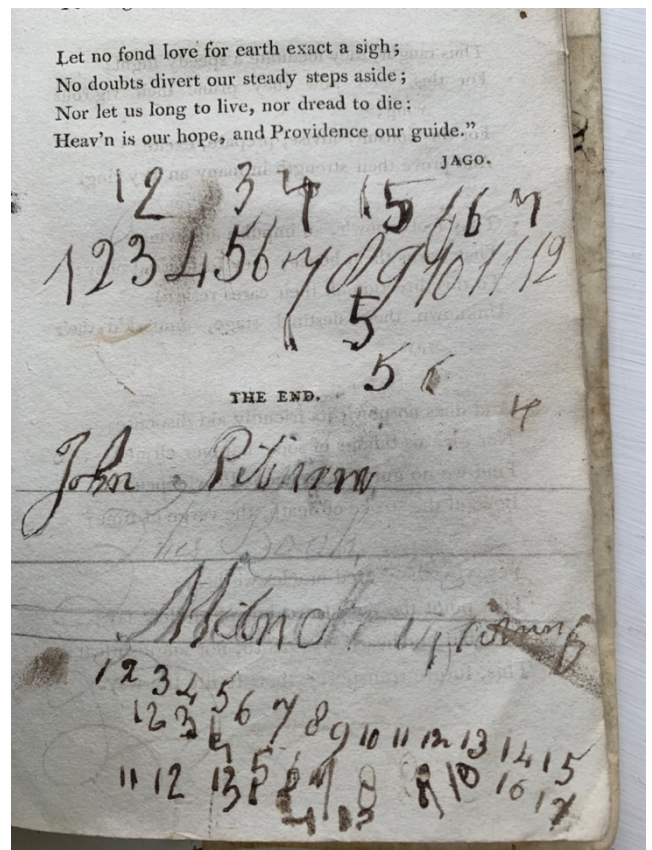 Let no fond love for earth exact a sigh;
No doubts divert our steady steps aside;
Nor let us long to live, nor dread to die:
Heav'n is our hope, and Providence our guide."
JAGO.
12 3 4 15 6 7
1 2 3 4 5 6 7 8 9 10 11 12
5
5 6
THE END.
4
John
His Book
March 14
1 2 3 4 5 6 7 8 9 10 11 12 13 14 15
12 3 4
11 12 13 5 8 10 16 17